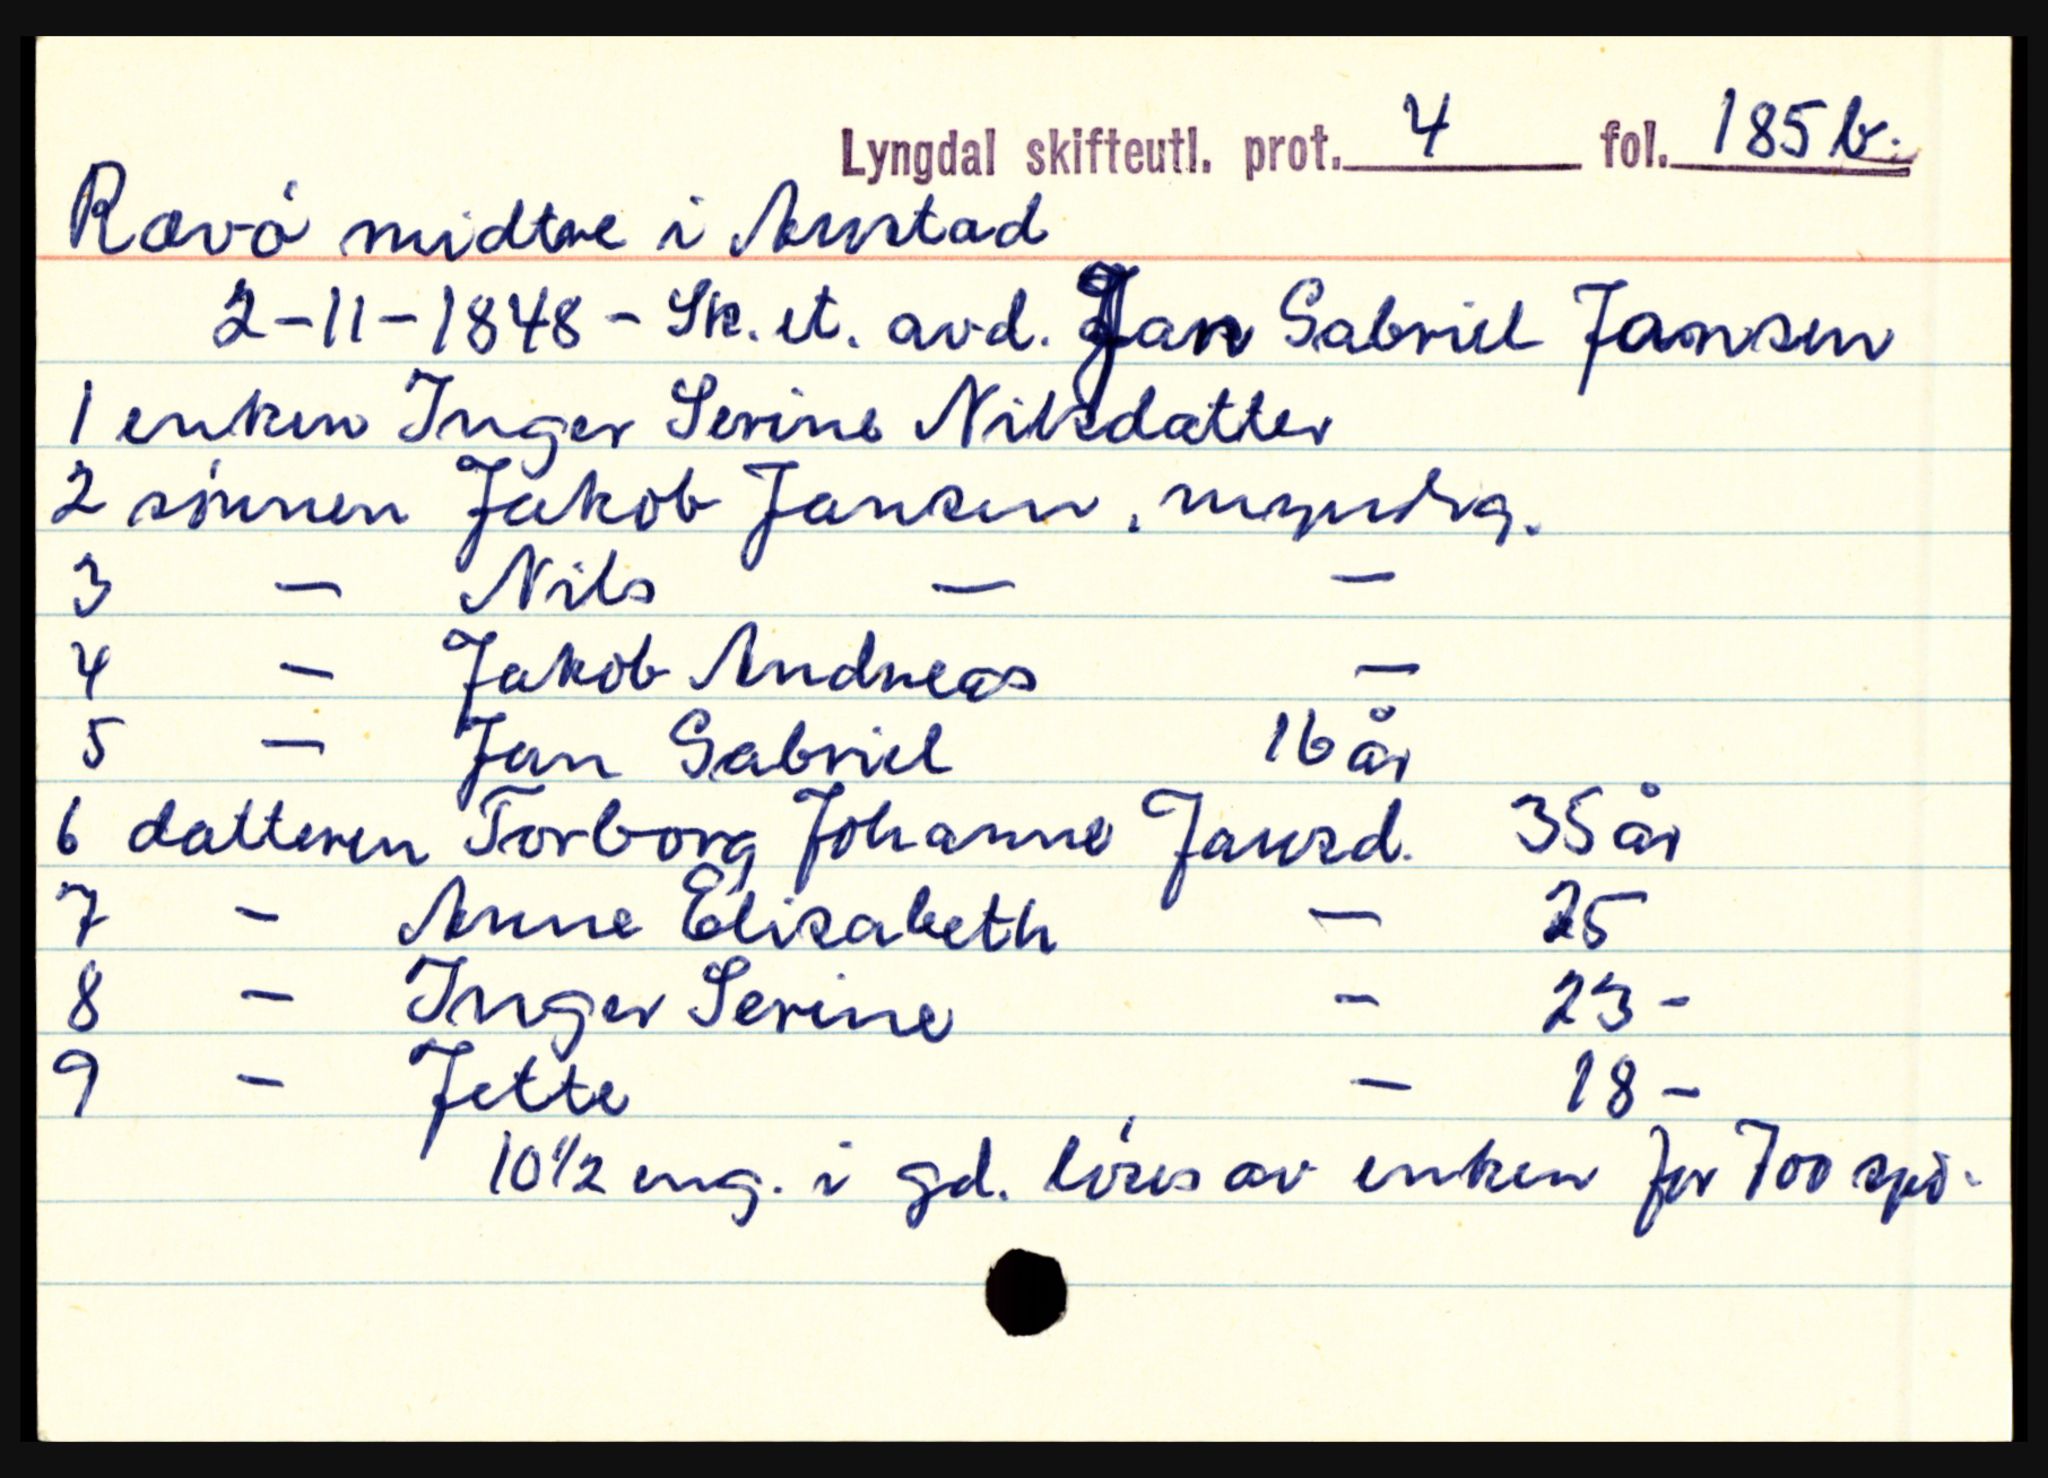 Lyngdal skifteutl. prot. 4 fol. 185b.
Rævö midtre i Austad
2-11-1848 - Sk. et. avd. Jan Gabriel Jansen
1 enken Inger Serine Nilsdatter
2 sönnen Jakob Jansen, myndig.
3 - Nils - -
4 - Jakob Andreas -
5 - Jan Gabriel 16 år
6 datteren Torborg Johanne Jansd. 35 år
7 - Anne Elisabeth - 25
8 - Inger Serine - 23 -
9 - Jette - 18 -
10 1/2 eng. i gd. löses av enken for 700 spd.